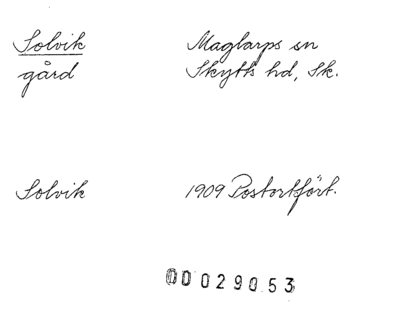 Solvik Maglarps sn
gård Skytts hd, Sk.
Solvik 1909 Postortfört.
00029053